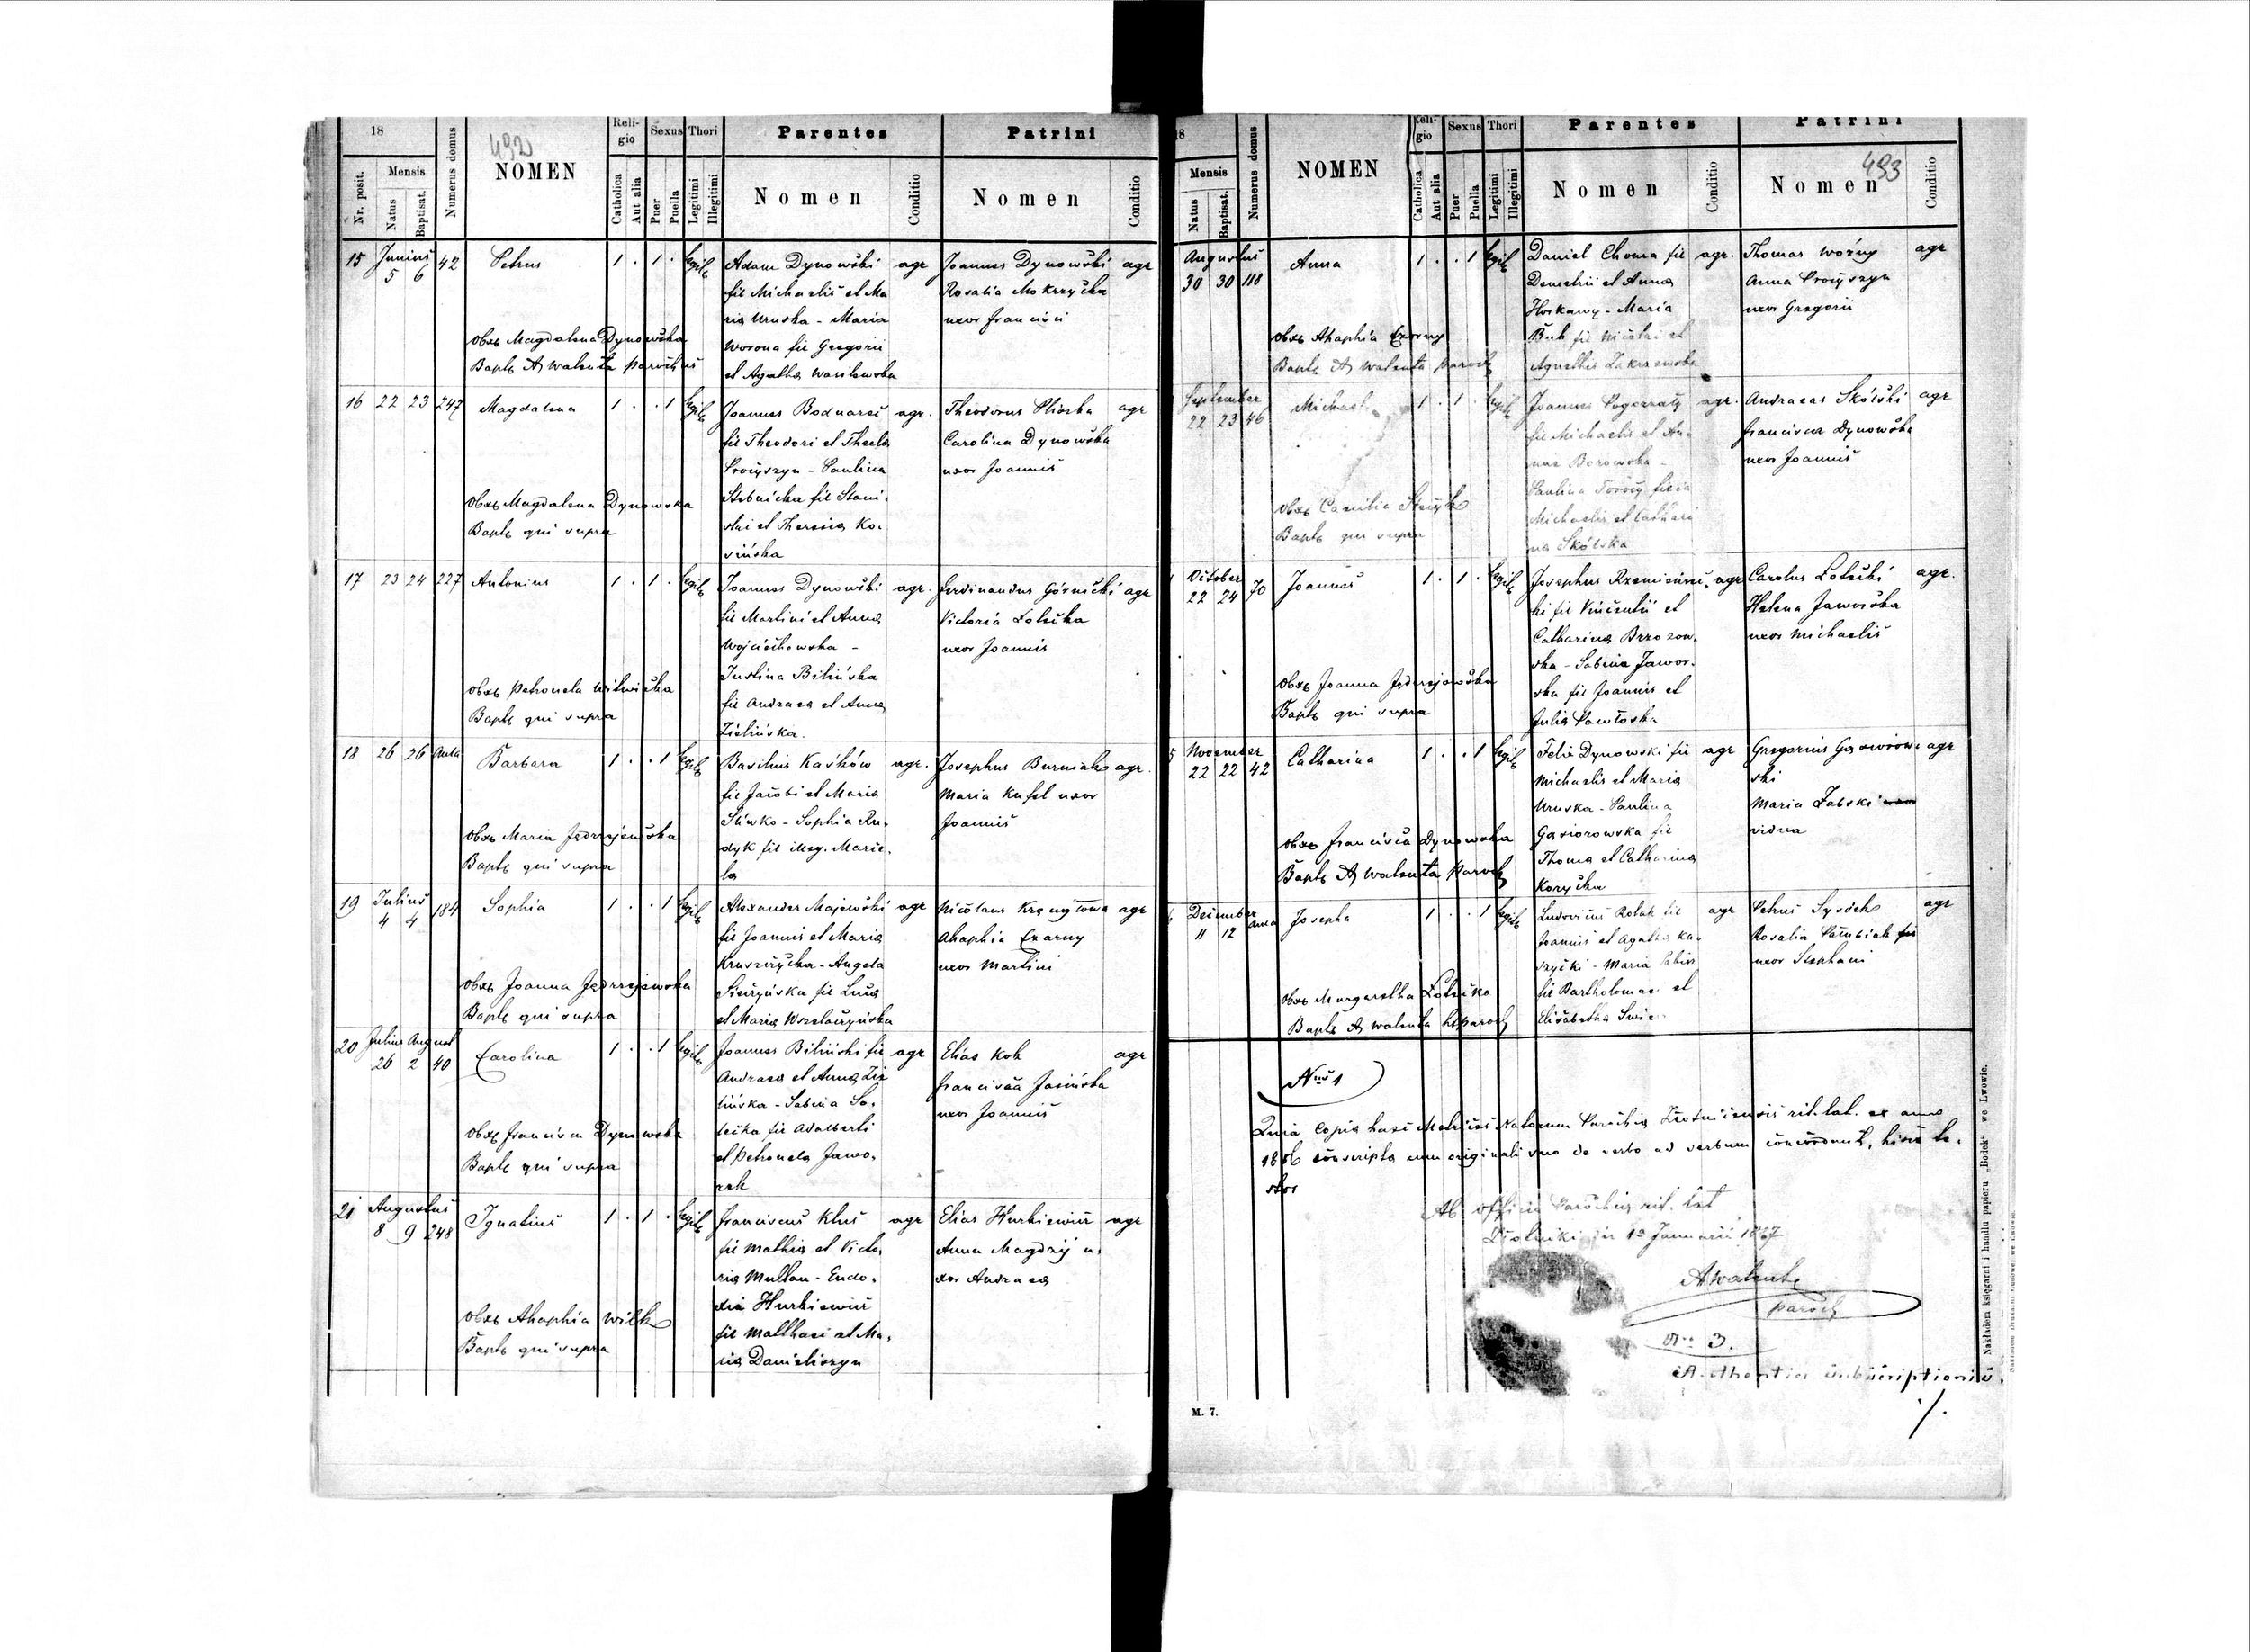 18
492
Nr. posit.
Mensis
Natus
Baptisat.
Numerus domus
NOMEN
Reli-
gio
Catholica
Aut alia
Sexus
Puer
Puella
Thori
Legitimi
Illegitimi
Parentes
Nomen
Conditio
Patrini
Nomen
Conditio
15 Junius 5 6 42 Petrus 1 . 1 .
Adam Dynowski agr
fil Michaelis et Ma
ria Uruska - Maria
Worona fil Gregorii
et Agatha Wasilewska
Joannes Dynowski agr
Rosalia Mokrzycka
uxor Francisci
Obst Magdalena Dynowska
Bapt A Walenta parochus
16 22 23 247 Magdalena 1 . . 1
Joannes Bodnarsi agr.
fil Theodori et Thecla
Procyszyn - Paulina
Stebnicka fil Stani.
slai et Theresia Ko.
sińska
Theodorus Pliszka agr
Carolina Dynowska
uxor Joannis
Obst Magdalena Dynowska
Bapt qui supra
17 23 24 227 Antonius 1 . 1 .
Joannes Dynowski agr.
fil Martini et Anna
Wojciechowska -
Justina Bilińska
fil Andraea et Anna
Zielińska.
Ferdinandus Górnicki agr
Victoria Łotecka
uxor Joannis
Obst Petronela
Bapt qui supra
18 26 26 Barbara 1 . . 1
Basilius Kaśków agr.
fil Jacobi et Maria
Śliwko - Sophia Ru.
dyk fil illeg. Marie.
la
Josephus Burniak agr.
Maria Kufel uxor
Joannis
Obst Maria Jędrzejewska
Bapt qui supra
19 Julius 4 4 184 Sophia 1 . . 1
Alexander Majewski agr
fil Joannis et Maria
Kruszczycka - Angela
fil Luca
et Maria
Nicolaus agr
Ahaphia Czarny
uxor Martini
Obst Joanna Jędrzejewska
Bapt qui supra
20 Julius August 26 2 40 Carolina 1 . . 1
Joannes Biliński fil agr
Andraea et Anna Zie
lińska - Sabina So.
tecka fil Adalberti
et Petronela Jawo.
rek
Elias Kok agr
Francisca Jasińska
uxor Joannis
Obst Francisca Dynowska
Bapt qui supra
21 Augustus 8 9 248 Ignatius 1 . 1 .
Franciscus Klus agr
fil Mathia et Victo.
ria Multan - Eudo.
xia Hurkiewicz
fil Matthaei et Ma.
ria Danieliszyn
Elias Hurkiewicz agr
Anna Magdzij u.
xor Andraea
Obst Ahaphia Wilk
Bapt qui supra
18
493
Mensis
Natus
Baptisat.
Numerus domus
NOMEN
Reli-
gio
Catholica
Aut alia
Sexus
Puer
Puella
Thori
Legitimi
Illegitimi
Parentes
Nomen
Conditio
Patrini
Nomen
Conditio
Augustus 30 30 118 Anna 1 . . 1
Daniel Choma fil agr.
Demetrii et Anna
Horkawy - Maria
Buk fil Nicolai et
Agnethis Zakrzewska
Thomas Woźny agr
Anna Procyszyn
uxor Gregorii
Obst Ahaphia Czarny
Bapt A Walenta paroch
September 22 23 46 Michael 1 . 1 .
Joannes agr.
fil Michaelis et An.
nae Borowska -
Paulina filia
Michaelis et Cathari
na Skólska
Andraeas Skólski agr
Francisca Dynowska
uxor Joannis
Obst
Bapt qui supra
October 22 24 70 Joannes 1 . 1 .
Josephus agr
ki fil Vincentii et
Catharina Brzozow.
ska - Sabina Jawor.
ska fil Joannis et
Julia Pawłoska
Carolus Łotecki agr.
Helena Jaworska
uxor Michaelis
Obst Joanna Jędrzejowska
Bapt qui supra
5 November 22 22 42 Catharina 1 . . 1
Felix Dynowski fil agr
Michaelis et Maria
Uruska - Paulina
Gąsiorowska fil
Thoma et Catharina
Korycka
Gregorius Gąsiorow agr
ski
Maria Żabski
vidua
Obst Francisca Dynowska
Bapt A Walenta paroch
December 11 12 Josepha 1 . . 1
Ludovicus Rolak fil agr
Joannis et Agatha Ka.
szycki - Maria
fil Bartholomae et
Elisabetha
Petrus Sysdek agr
Rosalia
uxor Stephani
Obst Margaretha Łotecka
Bapt A Walenta paroch
Nus 1
Quia Copia haec Natorum Parochia Złotnicensis rit. lat. ex anno
1886 conscripta cum originali suo de verbo ad verbum concordant, hisce te.
stor
Ab officio Parochia rit. lat
Złotniki die 1a Januarii 1887
A Walenta
paroch
Nro 3.
subscriptionis
./.
M. 7.
Nakładem księgarni i handlu papieru „Bodek“ we Lwowie.